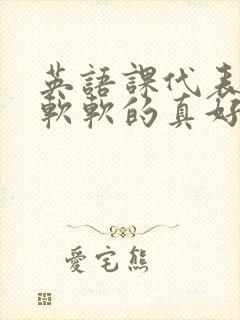 英語課代表
軟軟的真好
愛宅熊